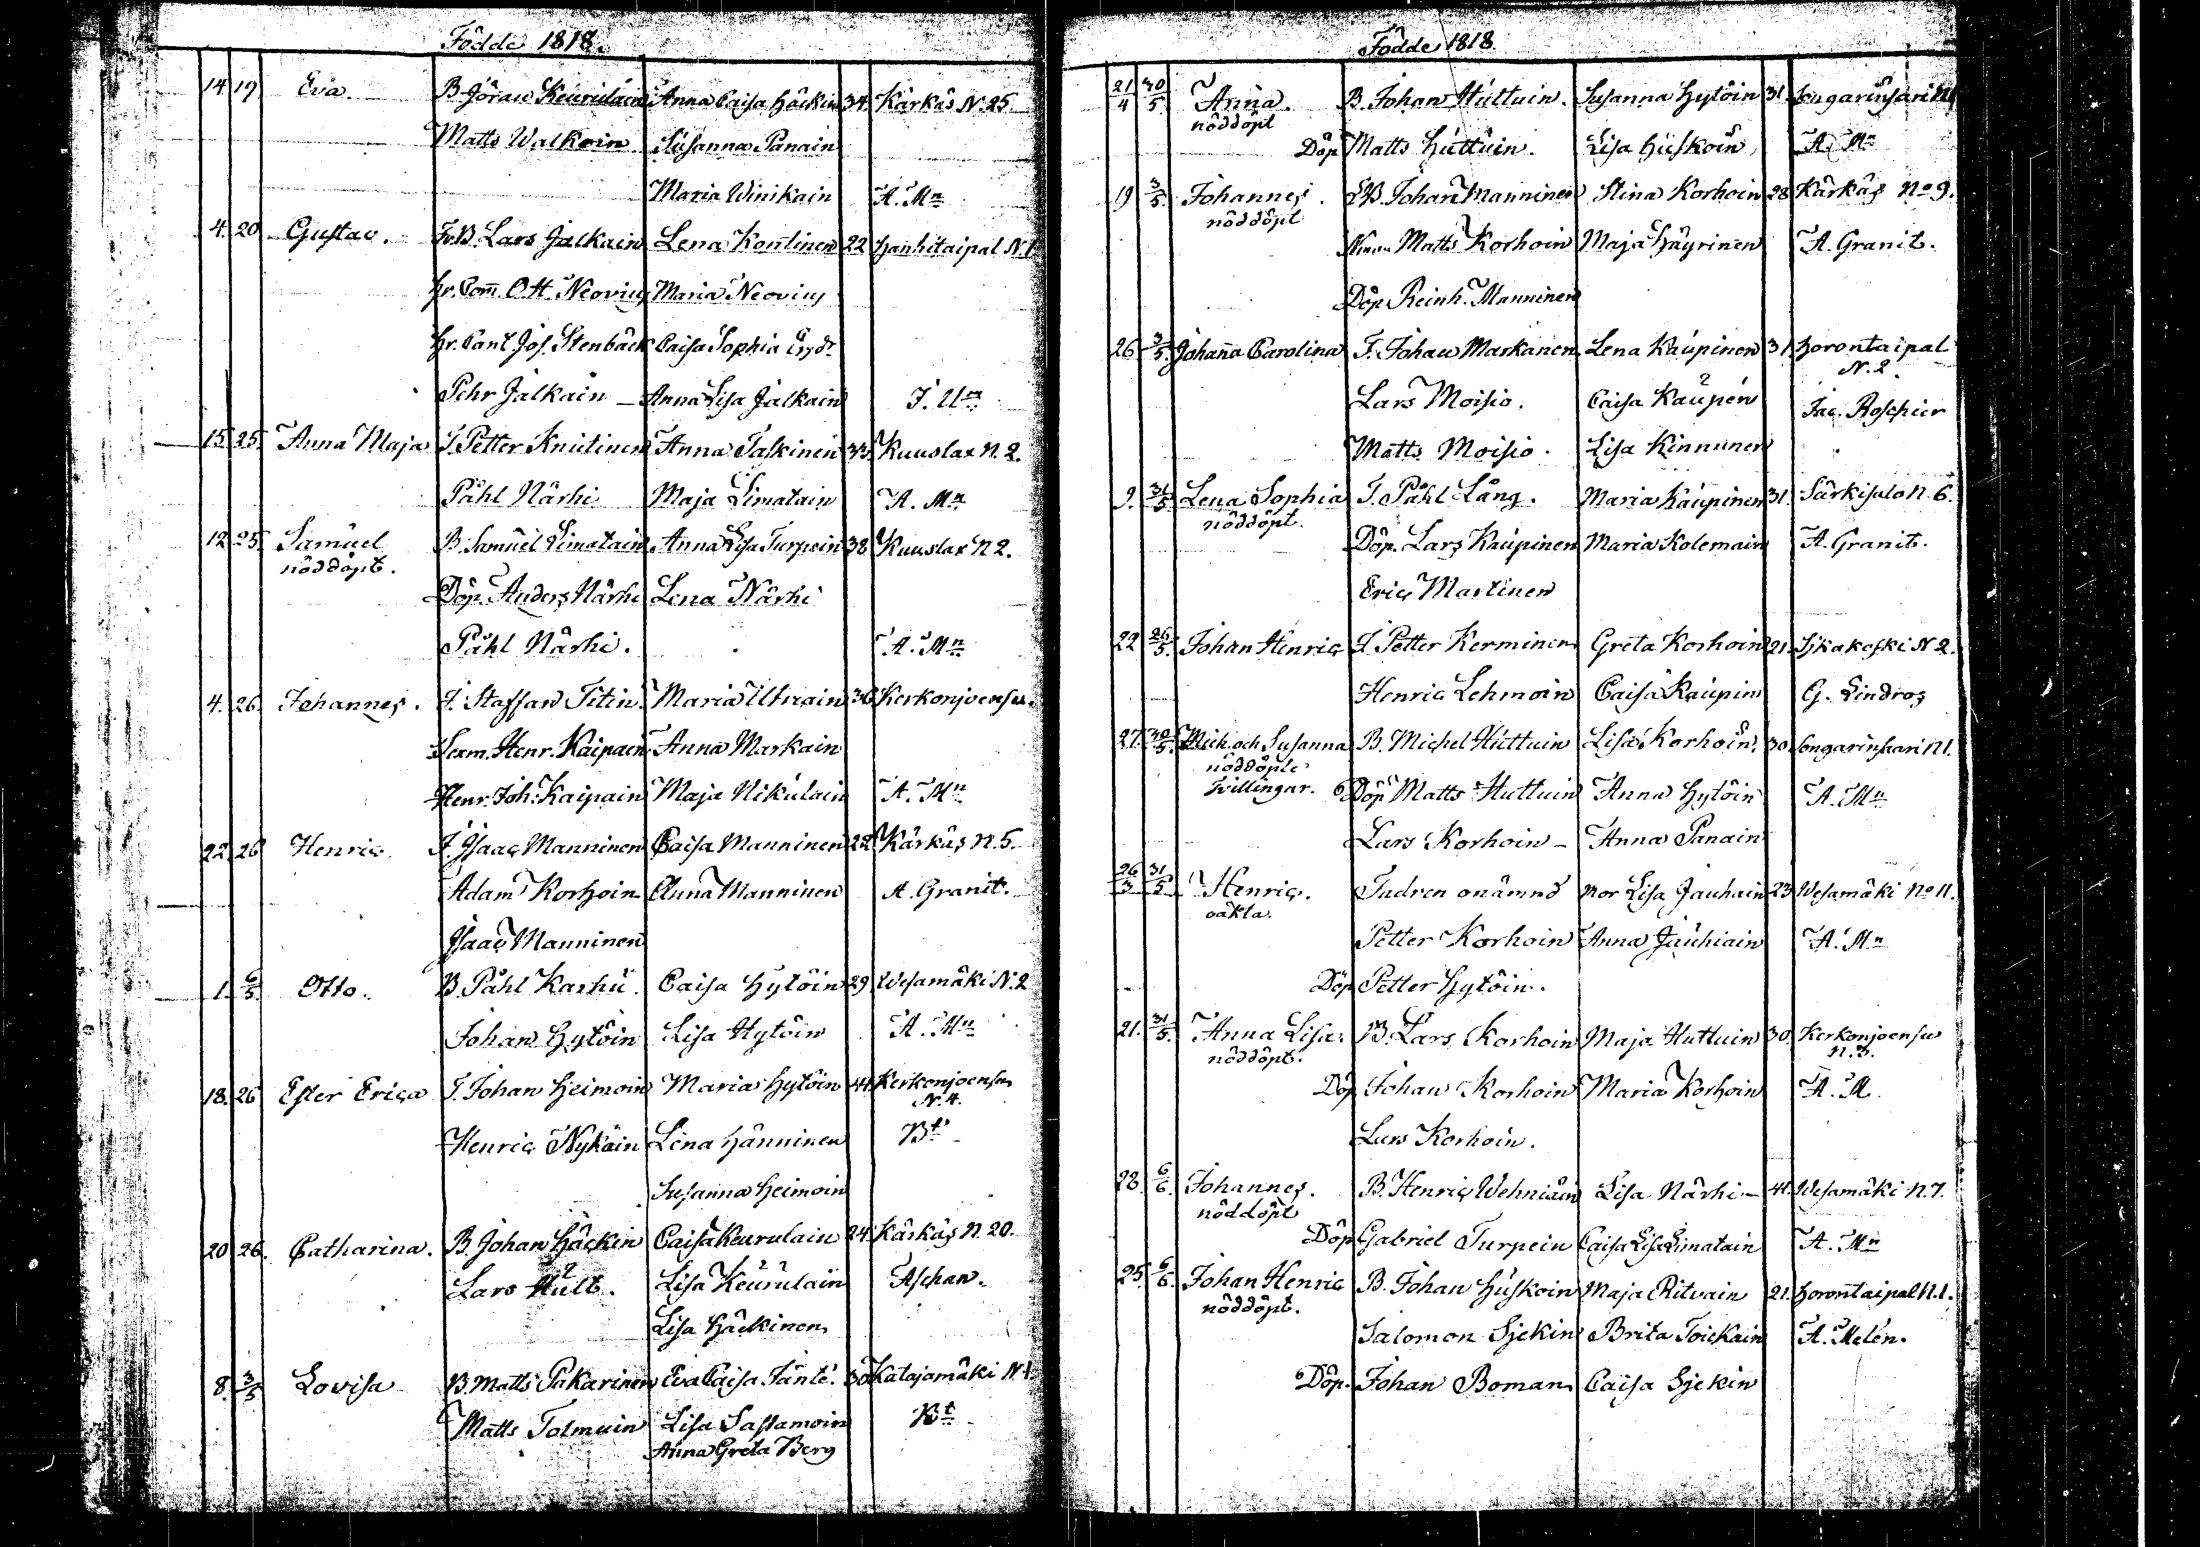 Födde 1818.
14 19 Eva. B. Jöran Keurulain Anna Caisa Häckin 34. Kärkäs N. 25.
Matts Walkoin Susanna Panain
Maria Winikain A. Mn
4. 20 Gustav. Fr.B. Lars Jalkain Lena Kontinen 22 Hanhitaipal N. 1
Hr. Com. Ott. Neovius Maria Neovius
Hr. Cant. Jos. Stenbäck Caisa Sophia
Pehr Jalkain — Anna Lisa Jalkain
15. 25. Anna Maja T. Petter Knutinen Anna Talkinen 33. Kuuslax N. 2.
Påhl Närhi Maja Limatain A. Mn
12. 25. Samuel B. Samuel Limatain Anna Lisa Turpein 38 Kuuslax N 2.
nöddöpt.
Döp. Anders Närhi Lena Närhi
Påhl Närhi. A. Mn
4. 26. Johannes. T. Staffan Titin. Maria 36 Kerkonjoensu.
Henr. Kaipain Anna Markain
Henr. Joh. Kaipain Maja Nikulain A. Mn
22. 26 Henric I. Isaac Manninen Caisa Manninen 22 Kärkäs N. 5.
Adam Korhoin Anna Manninen A. Granit.
Isaac Manninen
1. 6/5. Otto. B. Påhl Karhu. Caisa Hytöin 29. Wesamäki N. 2
Johan Hytöin Lisa Hytöin A. Mn
18. 26 Ester Erica T. Johan Heimoin Maria Hytöin 44. Kerkonjoensu
N. 4.
Henric Nykäin Lena Hänninen Bt
Susanna Heimoin
20 26. Catharina. B. Johan Häckin Caisa Keurulain 24. Kärkäs N. 20.
Lars Hult. Lisa Keurulain Aschan.
Lisa Häckinen
8. 3/5 Lovisa B. Matts Pakarinen Eva Caisa Jänte. 30 Katajamäki N. 1
Matts Tolmuin Lisa Sastamoin Bt
Anna Greta Berg
Födde 1818
21/4 30/5 Anna. B. Johan Huttuin. Susanna Hytöin 31. Songarinsari N 1
nöddöpt
Döp Matts Huttuin. Lisa Huskoin A. Mn
19 3/5. Johannes. B. Johan Manninen Stina Korhoin 28 Kärkäs No 9.
nöddöpt
Matts Korhoin Maja Häyrinen A. Granit.
Döp Reinh. Manninen
26 3/5. Johanna Carolina T. Johan Markanen Lena Kaupinen 31. Horontaipal
N. 2.
Lars Moisio. Caisa Kaupen Jac. Roschier
Matts Moisio. Lisa Kinnunen
9. 31/5 Lena Sophia T. Påhl Lång. Maria Kaupinen 31. Särkisalo N. 6.
nöddöpt.
Döp. Lars Kaupinen Maria Kolemain A. Granit.
Eric Martinen
22 26/5. Johan Henric I. Petter Kerminen Greta Korhoin 21. Sikakoski N 2.
Henric Lehmoin Caisa Kaupin G. Lindros
27. 30/5. Mich. och Susanna B. Michel Huttuin Lisa Korhoin. 30. Songarinsari N 1.
nöddöpte
Tvillingar. Döp Matts Huttuin Anna Hytöin A. Mn
Lars Korhoin — Anna Panain
26/3 31/5 Henric. Fadren onämnd Mor Lisa Jauhain 23 Wesamäki No 11.
oäkta.
Petter Korhoin Anna Jauhiain A. Mn
Döp Petter Hytöin.
21. 31/5. Anna Lisa. B. Lars Korhoin Maja Huttuin 30. Kerkonjoensu
nöddöpt. N. 3.
Döp Johan Korhoin Maria Korhoin A. M.
Lars Korhoin.
28. 6/6. Johannes. B. Henric Wehniäin Lisa Närhi — 41. Wesamäki N. 7.
nöddöpt
Döp Gabriel Turpein Caisa Lisa Limatain A. Mn
25. 6/6. Johan Henric B. Johan Huskoin Maja Ritvain 21. Horontaipal N. 1.
nöddöpt.
Salomon Sjekin Brita Toickain A. Melén.
Döp. Johan Boman Caisa Sjekin